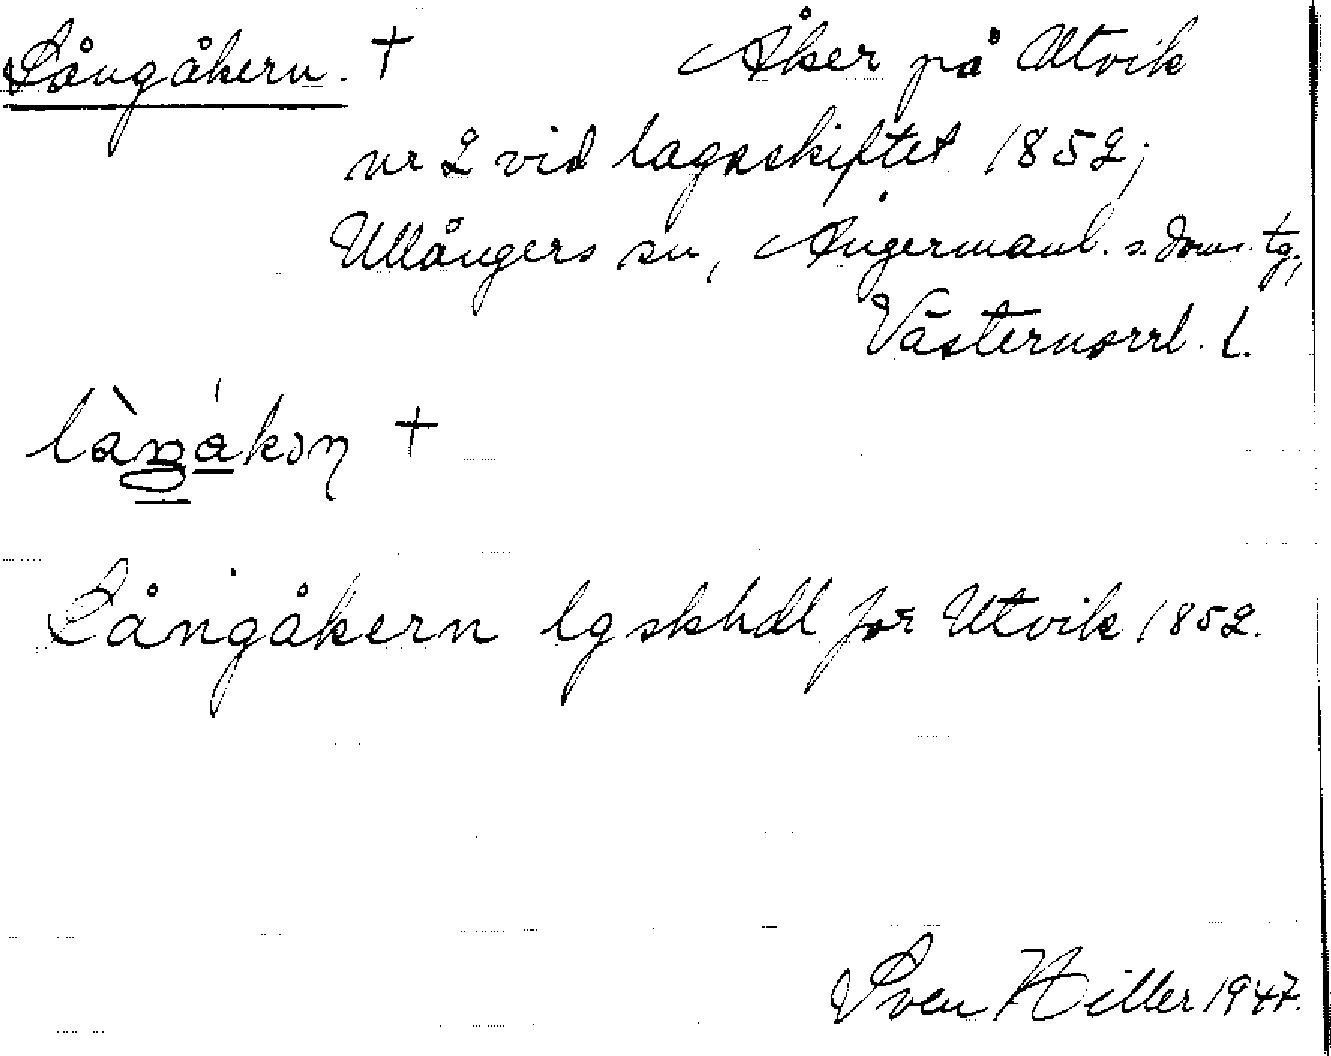 Långåkern. † Åker på Utvik
nr 2 vid lagaskiftet 1852;
Ullångers sn, Ångermanl. s. doms. tg.,
Västernorrl. l.
†
Långåkern lgskhdl för Utvik 1852.
Sven Hiller 1947.